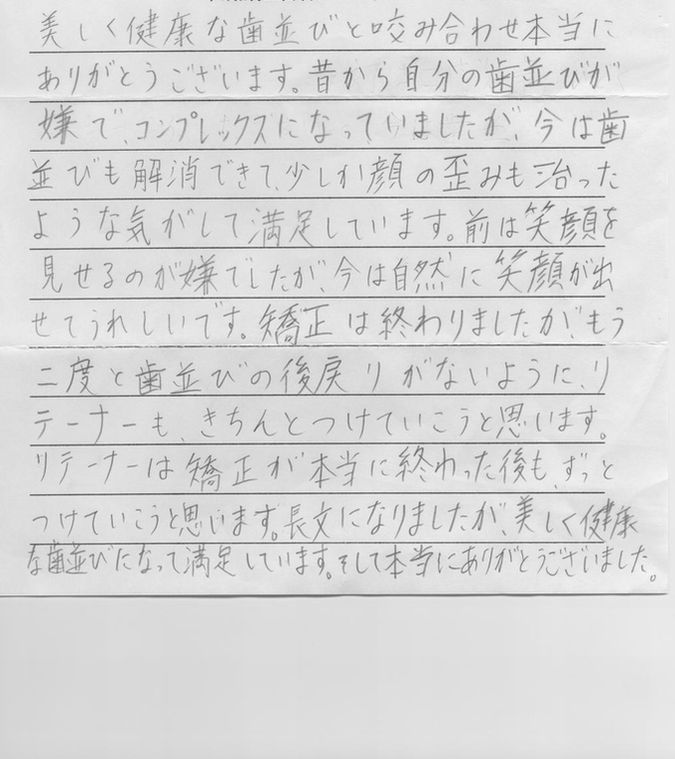 美しく健康な歯並びと咬み合わせ本当に
ありがとうございます。昔から自分の歯並びが
嫌で、コンプレックスになっていましたが、今は歯
並びも解消できて、少しか顔の歪みも治った
ような気がして満足しています。前は笑顔を
見せるのが嫌でしたが、今は自然に笑顔が出
せてうれしいです。矯正は終わりましたが、もう
二度と歯並びの後戻りがないように、リ
テーナーも、きちんとつけていこうと思います。
リテーナーは矯正が本当に終わった後も、ずっと
つけていこうと思います。長文になりましたが、美しく健康
な歯並びになって満足しています。そして本当にありがとうございました。